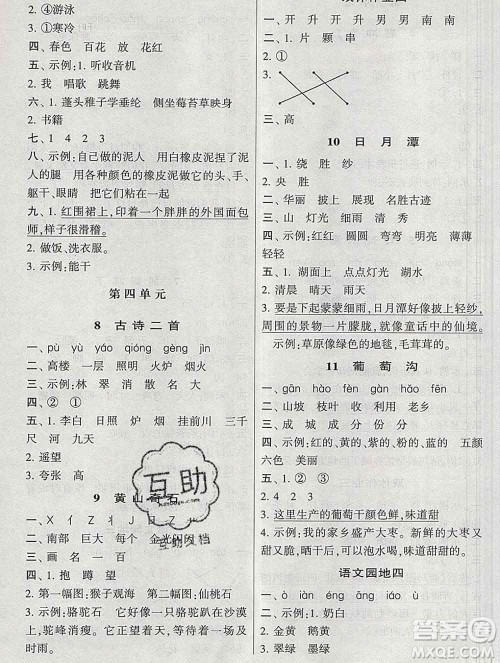 2. ④游泳
3. ①寒冷
四、春色 百花 放 花红
五、示例:1. 听收音机
2. 我 唱歌 跳舞
六、1. 蓬头稚子学垂纶 侧坐莓苔草映身
2. 书籍
七、1 4 2 3
八、示例:自己做的泥人 用白橡皮泥做泥人的
眼睛 用各种颜色的橡皮泥做它的头、手、
躯干、眼睛 我们在一起玩
九、1. 红围裙上,印着一个胖胖的外国面包
师,样子很滑稽。
2. 做饭、洗衣服。
3. 示例:能干
第四单元
8 古诗二首
一、pù yù yáo qióng gèng jìn
二、高楼 一层 照明 火炉 烟火
三、示例:林 翠 消 散 名 大
四、② ①
五、1. 李白 日照 炉 烟 挂前川 三千
尺 河 九天
2. 遥望
3. 夸张 高
9 黄山奇石
二、南部 巨大 每个 金光闪闪
三、画 名 前
四、1. 抱 蹲 望
2. 第一幅图:猴子观海 第二幅图:仙桃石
3. 示例:骆驼石 它像一只骆驼趴在沙漠
上,驼峰瘦瘦的。走近一看,还以为是及
时雨。
一、开 升 升 升 男 男 南 南
二、1. 片 颗 串
2. ① ②
3.
三、高
10 日月潭
一、1. 绕 胜 纱
2. 央 胜
二、华丽 披上 展现 名胜古迹
三、山 灯光 名胜 中央
四、示例:红红 圆圆 弯弯 明亮 薄薄
轻轻
五、1. 湖面上 点点灯光 湖水
2. 清晨 晴天 雨天
3. 要是下起蒙蒙细雨,日月潭好像披上轻纱,
周围的景物一片朦胧,就像童话中的仙境。
示例:草原像绿色的地毯,毛茸茸的。
11 葡萄沟
一、gān hào fèn gān hǎo fēn
二、山坡 枝叶 起来 客人
三、成 城 成 份 分
四、示例:红的、黄的、紫的、粉的、蓝的 五颜
六色 美丽
五、1. ②
2. 4 2 3
3. 这里生产的葡萄干颜色鲜,味道甜
4. 示例:我的家乡盛产大枣。新鲜的大枣又
大又红,晒干了,可以泡水喝,味道甜甜的。
语文园地四
一、ò ān è ān é ōu
二、示例:1. 奶白
2. 金黄 鹅黄
3. 翠绿 墨绿
互助
互助文档
答案圈
MXQE.COM